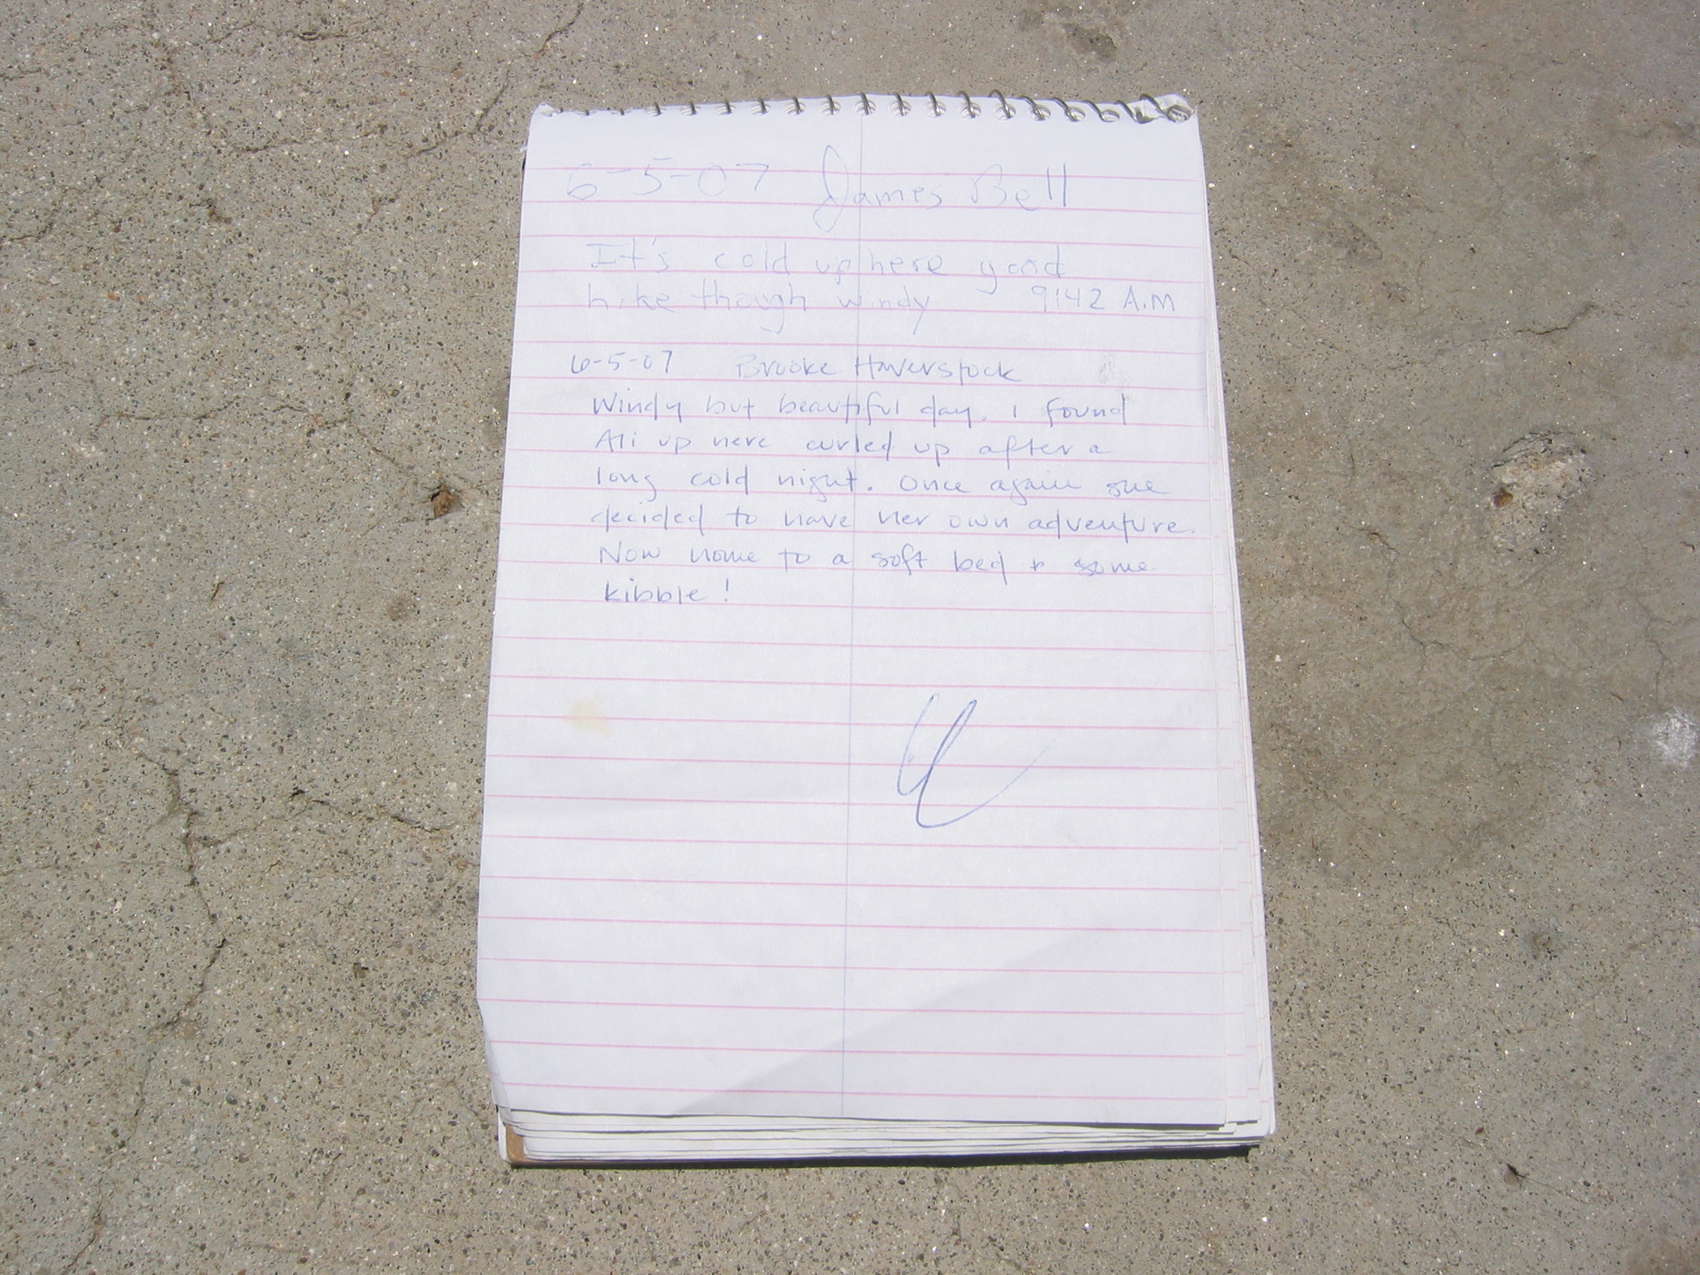 6-5-07 James Bell
It's cold up here good
hike though windy 9:42 A.M
6-5-07 Brooke Haverstock
Windy but beautiful day. I found
Ali up here curled up after a
long cold night. Once again she
decided to have her own adventure.
Now home to a soft bed & some
kibble!